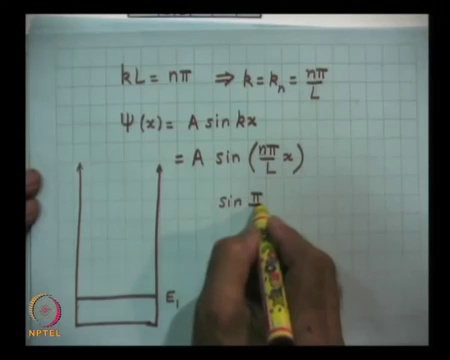 kL = nπ ⇒ k = kₙ = nπ/L
Ψ(x) = A sin kx
= A sin (nπ/L x)
sin π
E₁
NPTEL